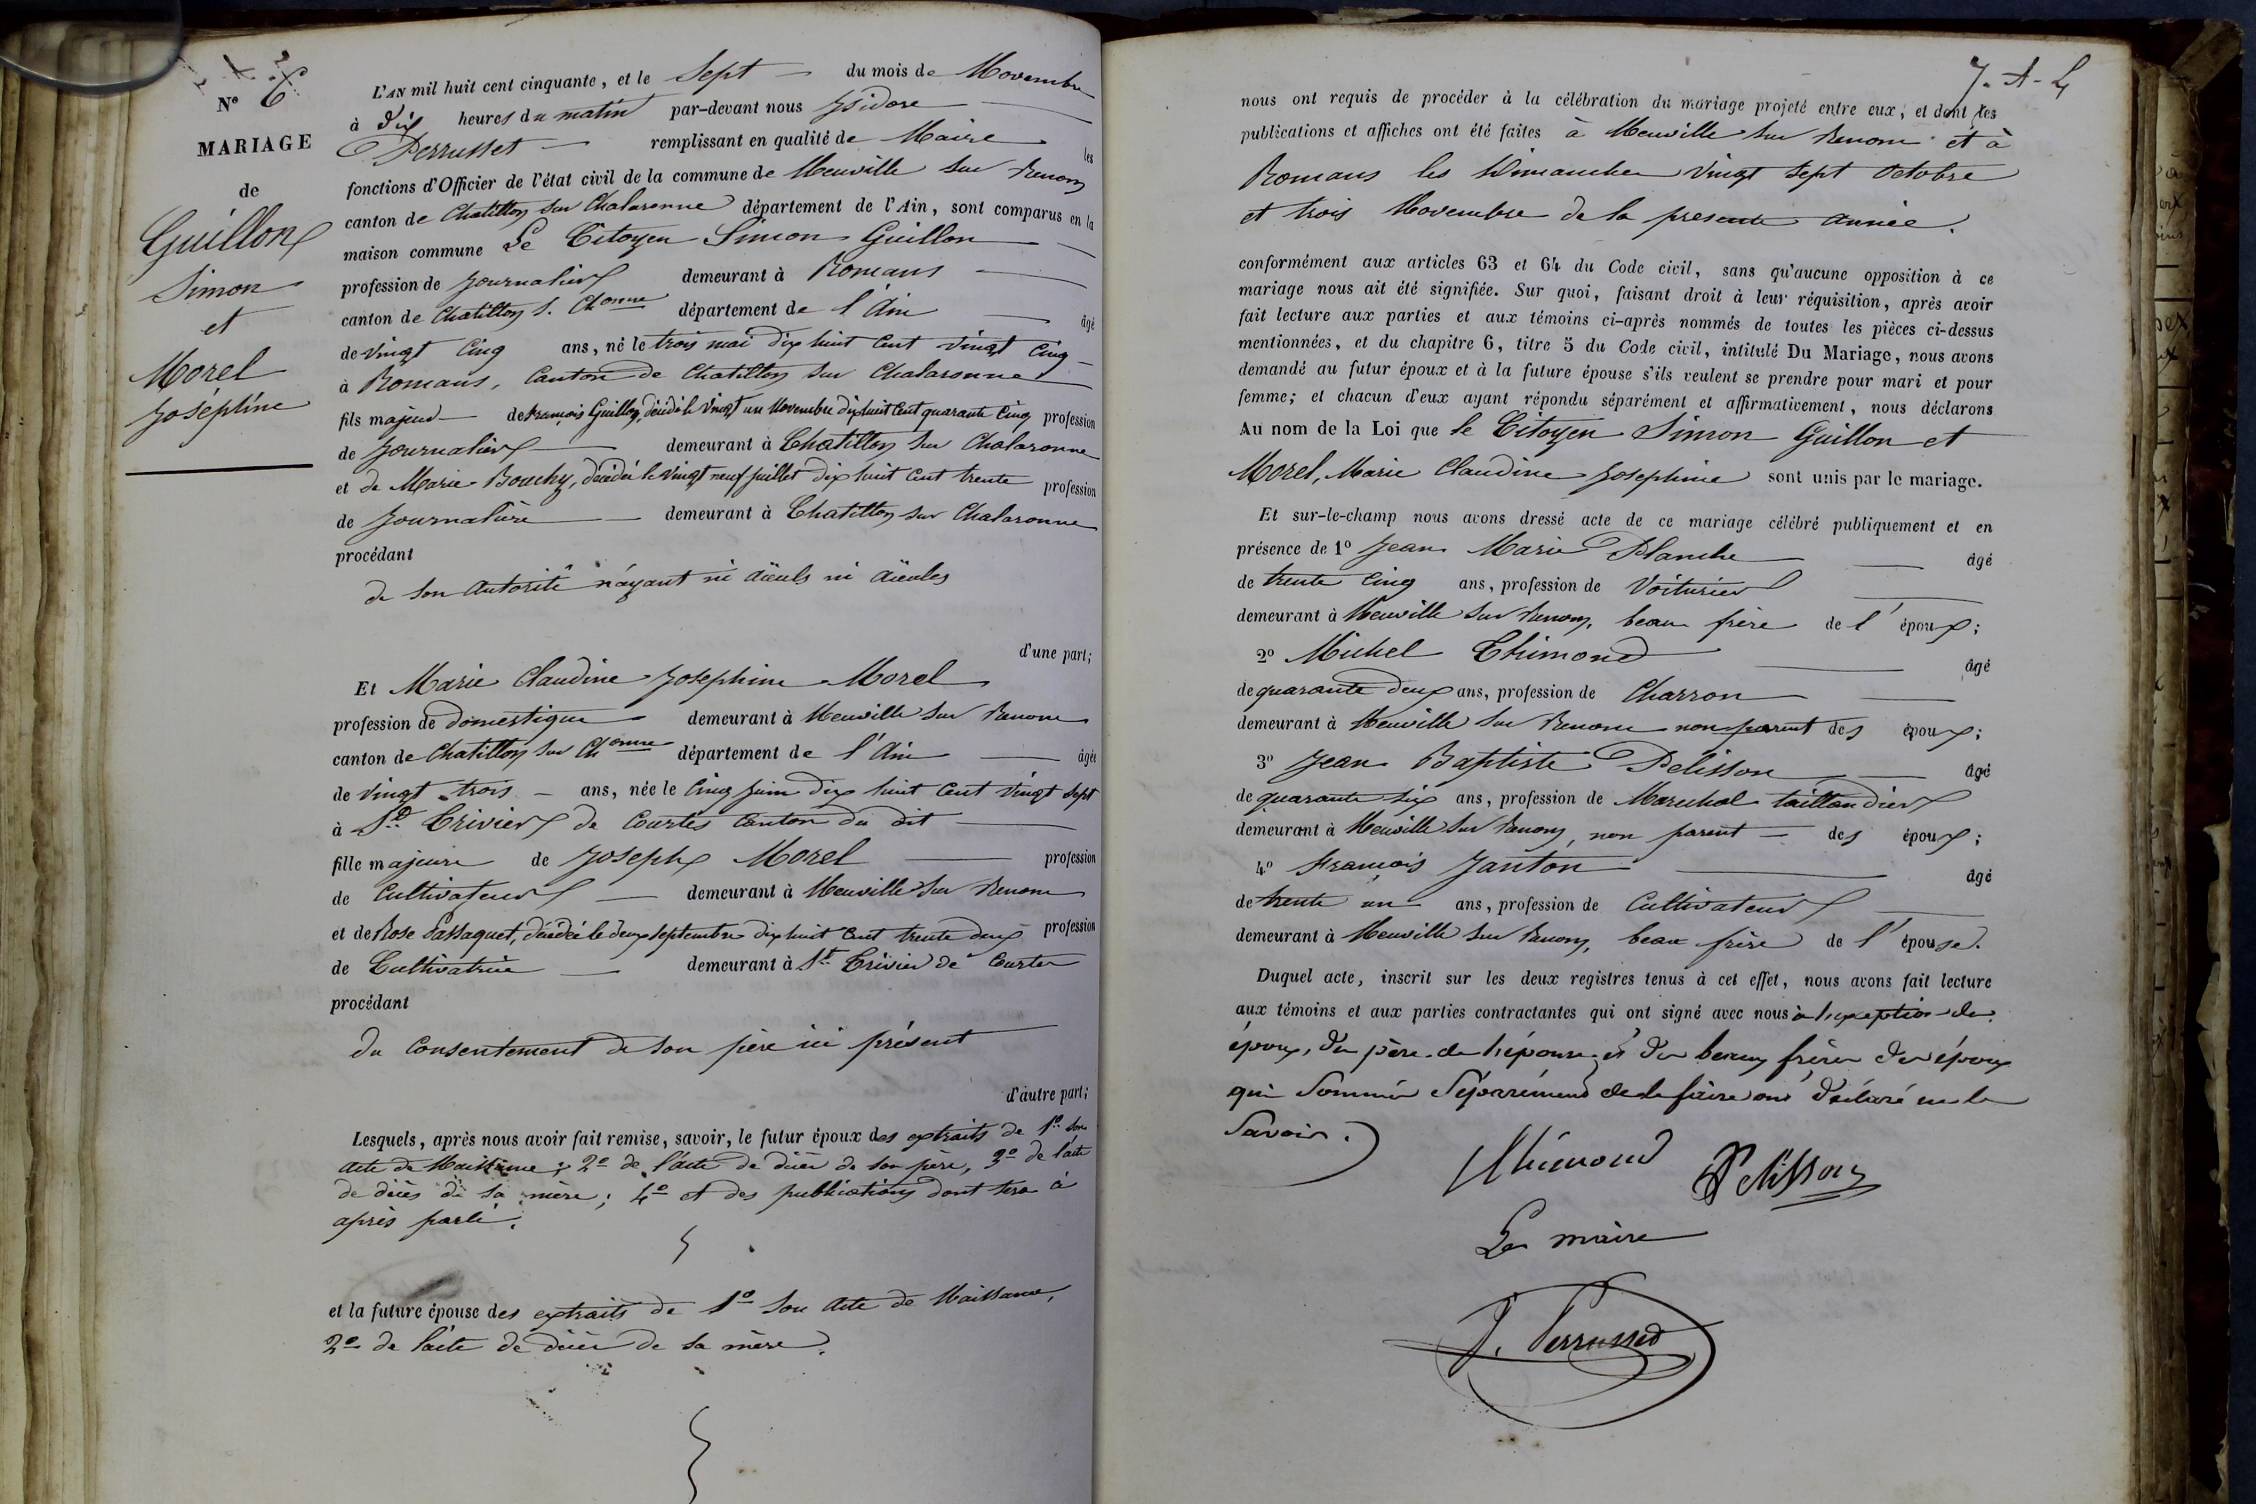 N° 6
MARIAGE
de
Guillon
Simon
et
Morel
Joséphine
L'AN mil huit cent cinquante, et le Sept du mois de Novembre
à dix heures du matin par-devant nous Isidore
Perrusset remplissant en qualité de Maire les
fonctions d'Officier de l'état civil de la commune de Neuville sur Renom
canton de Chatillon sur Chalaronne département de l'Ain, sont comparus en la
maison commune Le Citoyen Simon Guillon
profession de Journalier demeurant à Romans
canton de Chatillon s. Chonne département de l'Ain âgé
de vingt cinq ans, né le trois mai dix huit cent vingt cinq
à Romans, Canton de Chatillon sur Chalaronne
fils majeur de François Guillon, décédé le vingt un Novembre dix huit cent quarante cinq profession
de Journalier demeurant à Chatillon sur Chalaronne
et de Marie Bouchy, décédée le vingt neuf juillet dix huit cent trente profession
de Journalière demeurant à Chatillon sur Chalaronne
procédant
de son autorité n'ayant ni aïeuls ni aïeules
d'une part;
Et Marie Claudine Josephine Morel
profession de domestique demeurant à Neuville sur Renom
canton de Chatillon sur Chonne département de l'Ain âgée
de vingt trois ans, née le cinq juin dix huit cent vingt sept
à St. Trivier de Courtes Canton du dit
fille majeure de Joseph Morel profession
de Cultivateur demeurant à Neuville sur Renom
et de Rose Passaquet, décédée le deux septembre dix huit cent trente deux profession
de Cultivatrice demeurant à St. Trivier de Courtes
procédant
du consentement de son père ici présent
d'autre part;
Lesquels, après nous avoir fait remise, savoir, le futur époux des extraits de 1° son
acte de Naissance; 2° de l'acte de décès de son père, 3° de l'acte
de décès de sa mère; 4° et des publications dont sera ci
après parlé.
et la future épouse des extraits de 1° son acte de Naissance,
2° de l'acte de décès de sa mère.
nous ont requis de procéder à la célébration du mariage projeté entre eux, et dont les
publications et affiches ont été faites à Neuville sur Renom et à
Romans les Dimanches vingt sept octobre
et trois Novembre de la presente année.
conformément aux articles 63 et 64 du Code civil, sans qu'aucune opposition à ce
mariage nous ait été signifiée. Sur quoi, faisant droit à leur réquisition, après avoir
fait lecture aux parties et aux témoins ci-après nommés de toutes les pièces ci-dessus
mentionnées, et du chapitre 6, titre 5 du Code civil, intitulé Du Mariage, nous avons
demandé au futur époux et à la future épouse s'ils veulent se prendre pour mari et pour
femme; et chacun d'eux ayant répondu séparément et affirmativement, nous déclarons
Au nom de la Loi que le Citoyen Simon Guillon et
Morel, Marie Claudine Josephine sont unis par le mariage.
Et sur-le-champ nous avons dressé acte de ce mariage célébré publiquement et en
présence de 1° Jean Marie Planche âgé
de trente cinq ans, profession de Voiturier
demeurant à Neuville sur Renom, beau frère de l'époux;
2° Michel Thimond âgé
de quarante deux ans, profession de Charron
demeurant à Neuville sur Renom non parent des époux;
3° Jean Baptiste Pelisson âgé
de quarante six ans, profession de Marechal taillandier
demeurant à Neuville sur Renom, non parent des époux;
4° François Janton âgé
de trente un ans, profession de Cultivateur
demeurant à Neuville sur Renom, beau frère de l'épouse.
Duquel acte, inscrit sur les deux registres tenus à cet effet, nous avons fait lecture
aux témoins et aux parties contractantes qui ont signé avec nous à l'exception des
époux, du père de l'épouse et des beaux frères des époux
qui sommés séparément de le faire ont déclaré ne le
savoir.
Thimond Pelisson
Le maire
I. Perrusset